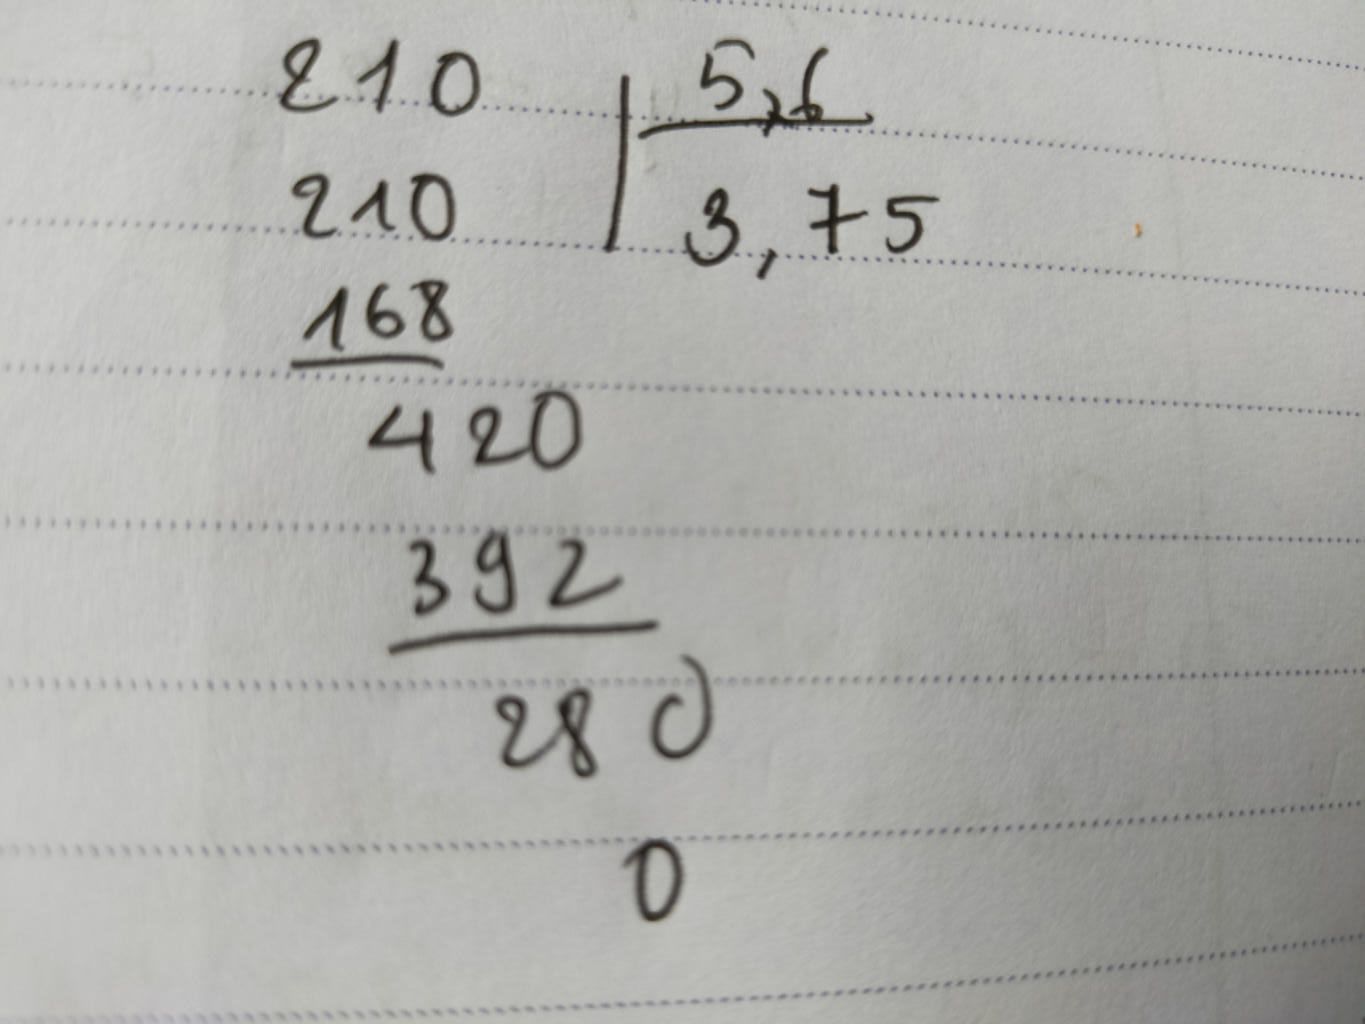 210 5,6
210 3,75
168
420
392
280
0